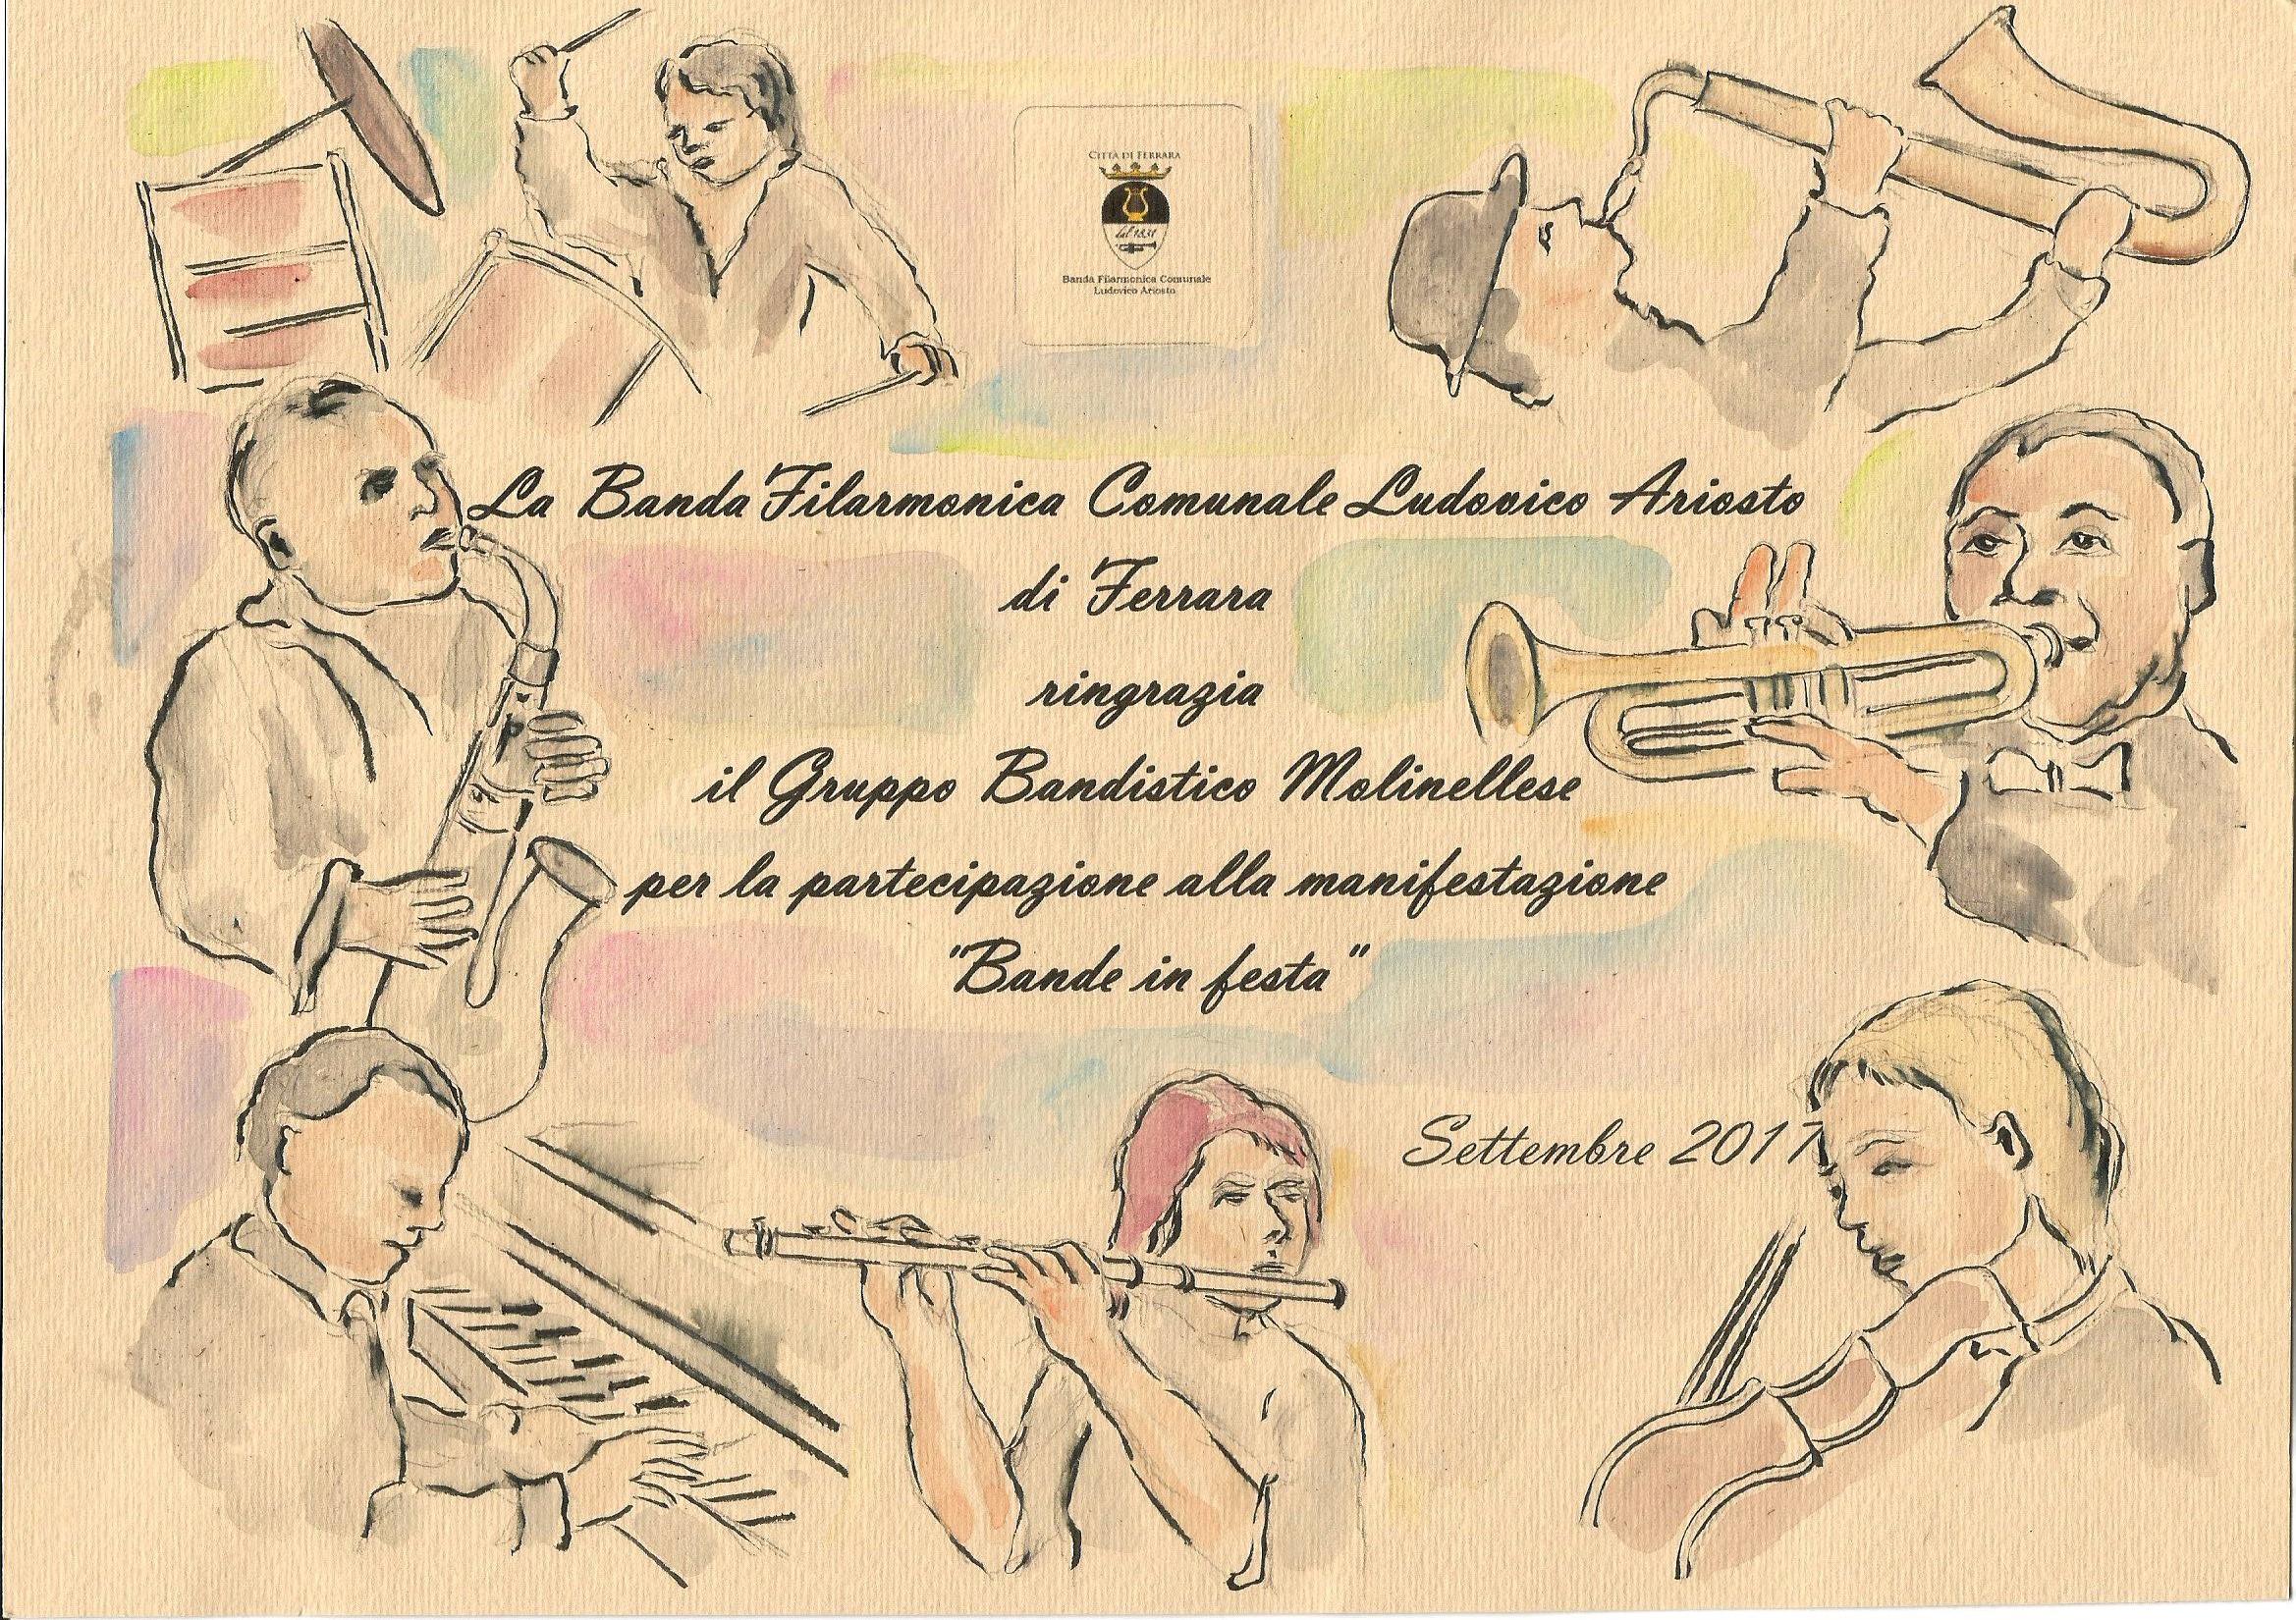 CITTÀ DI FERRARA
dal 1831
Banda Filarmonica Comunale
Ludovico Ariosto
La Banda Filarmonica Comunale Ludovico Ariosto
di Ferrara
ringrazia
il Gruppo Bandistico Molinellese
per la partecipazione alla manifestazione
"Bande in festa"
Settembre 2017